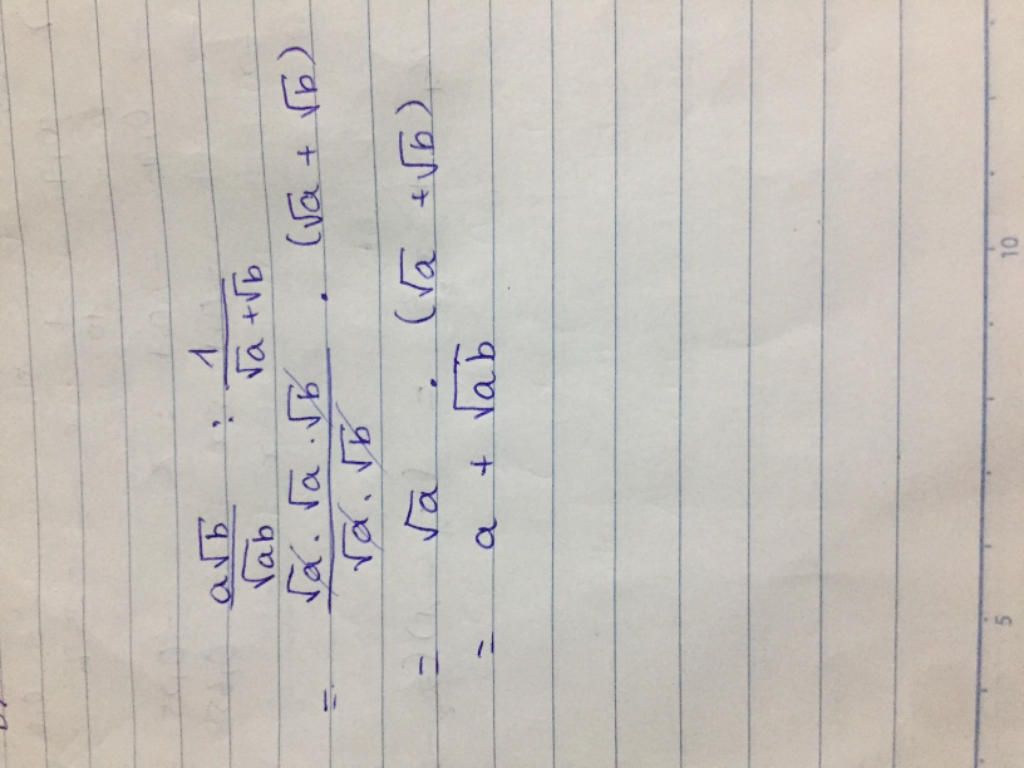 a√b / √ab : 1 / √a + √b
= √a . √a . √b / √a . √b . (√a + √b)
= √a . (√a + √b)
= a + √ab
5 10